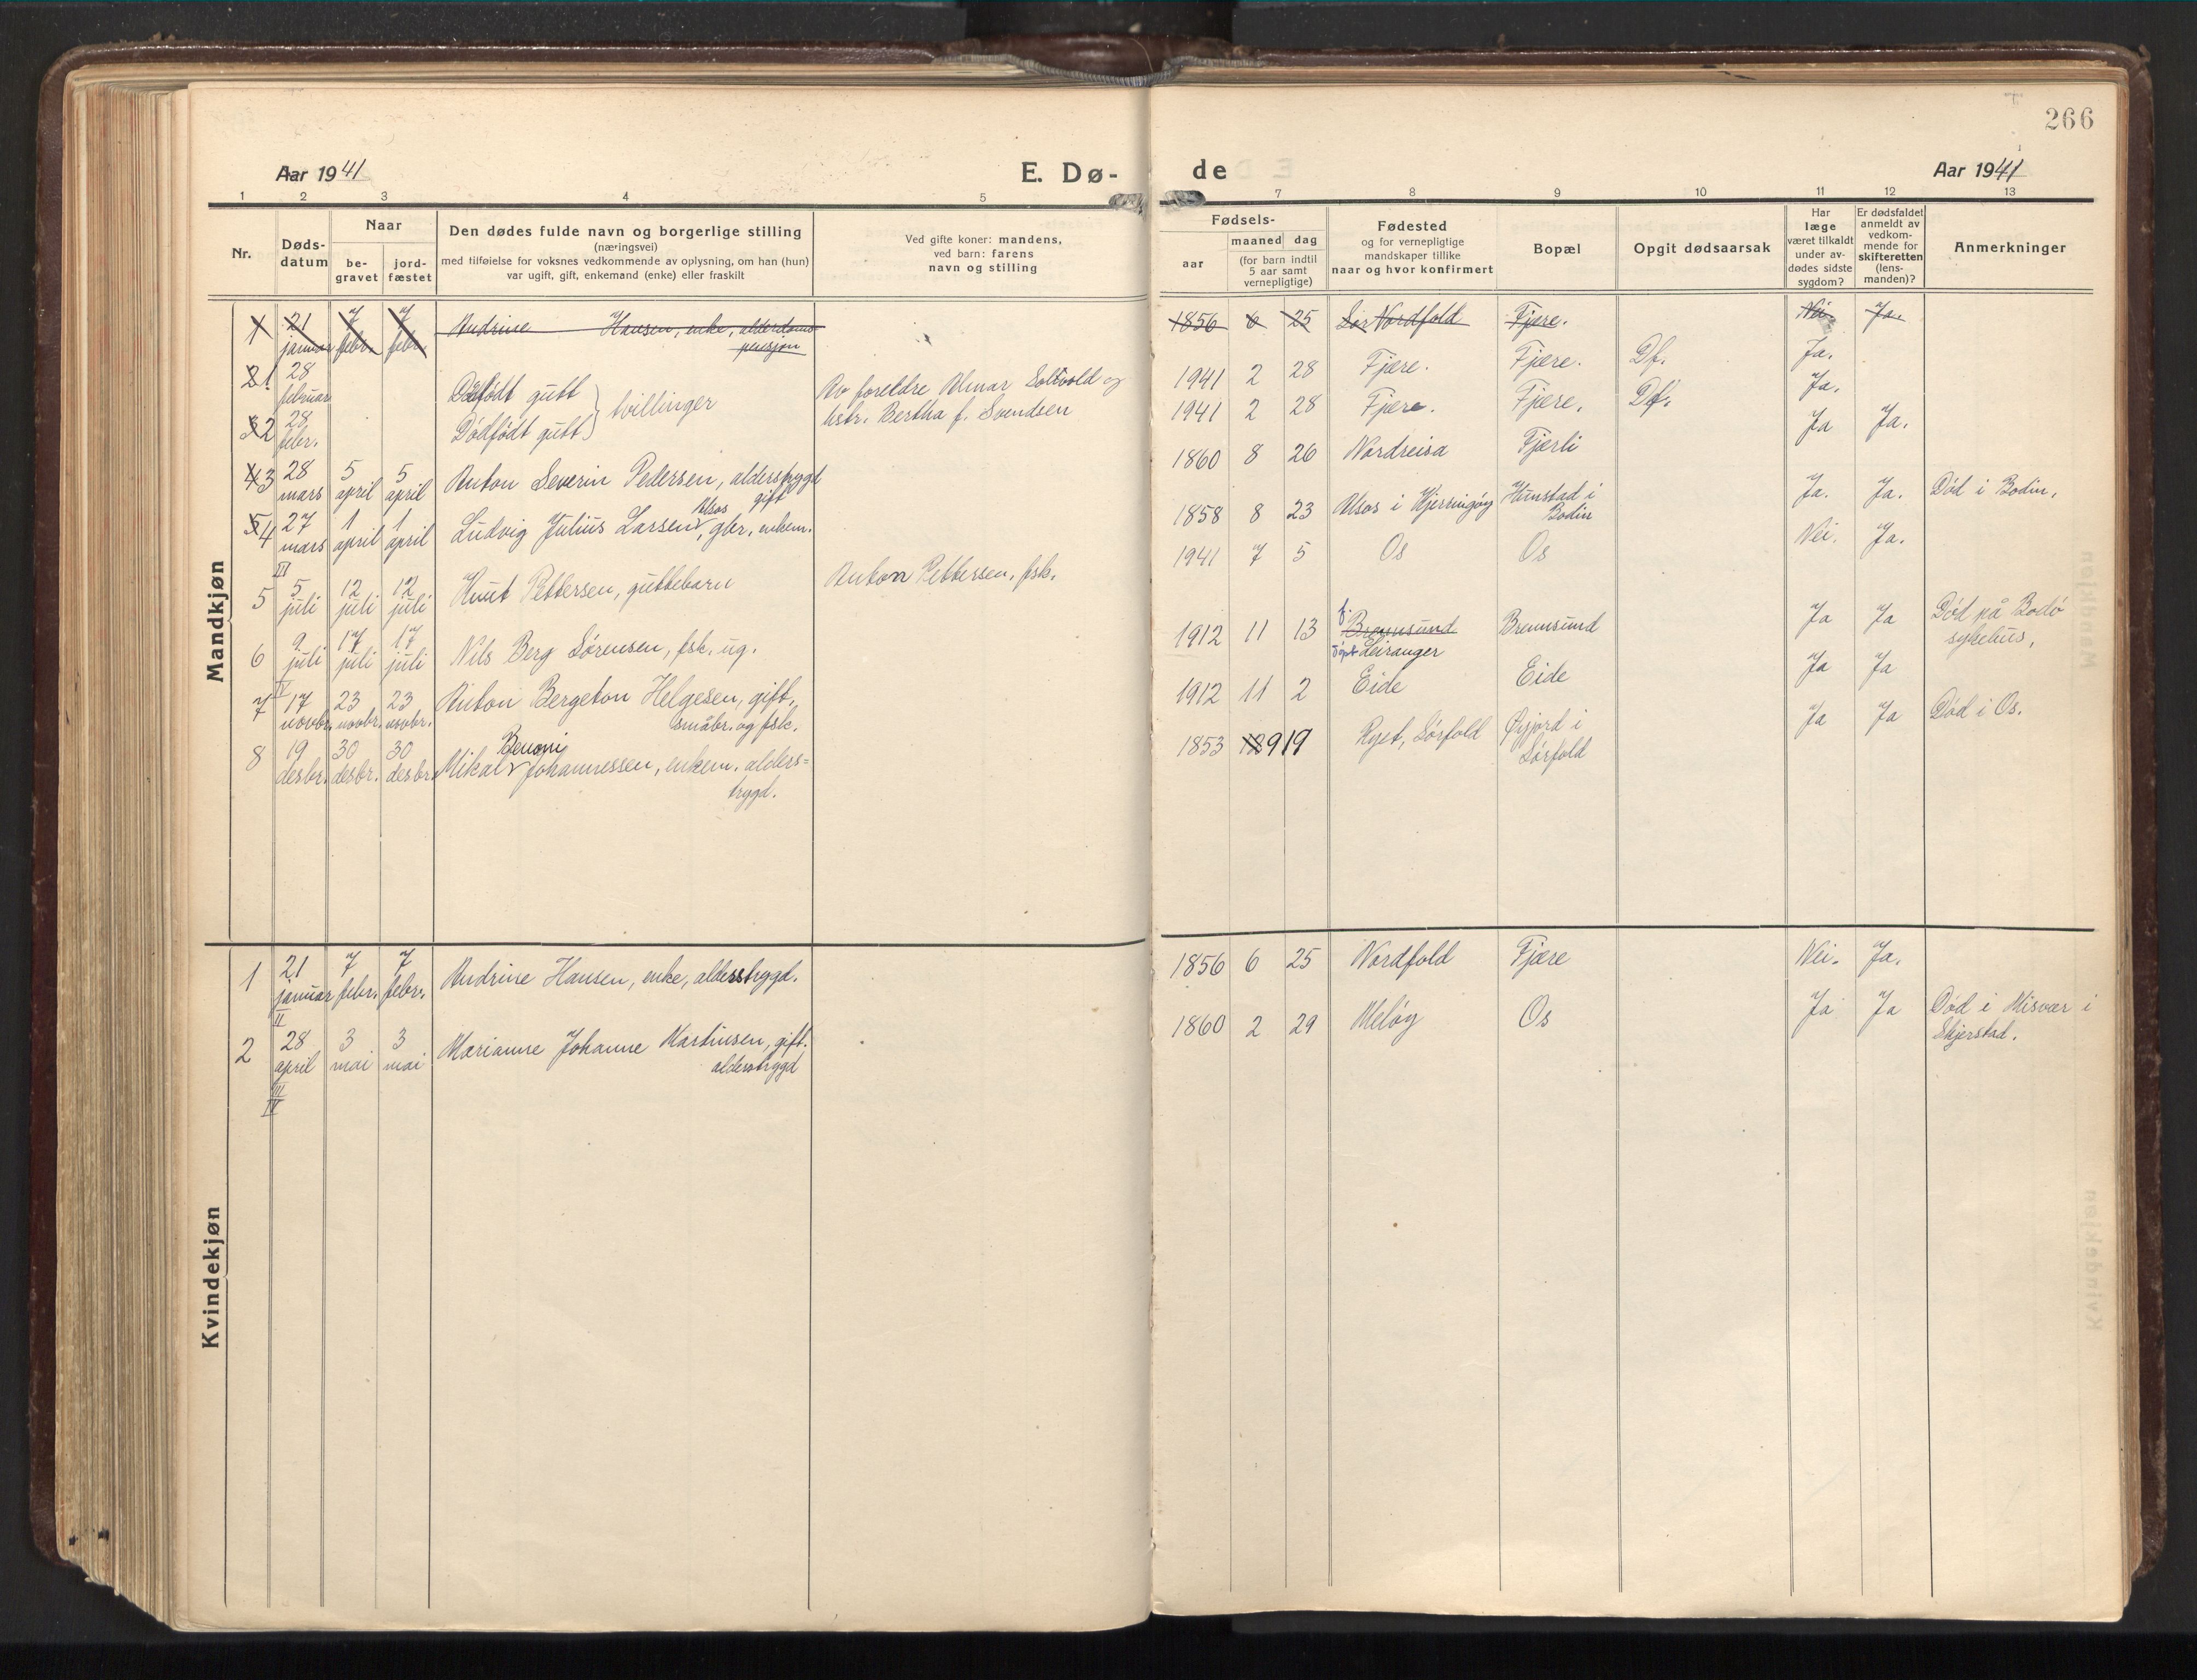 266
Aar 1941
E. Dø-
de
Aar 1941
1 2 3 4 5
7 8 9 10 11 12 13
Nr.
Døds-
datum
Naar
be-
gravet
jord-
fæstet
Den dødes fulde navn og borgerlige stilling
(næringsvei)
med tilføielse for voksnes vedkommende av oplysning, om han (hun)
var ugift, gift, enkemand (enke) eller fraskilt
Ved gifte koner: mandens,
ved barn: farens
navn og stilling
Fødsels-
aar
maaned dag
(for barn indtil
5 aar samt
vernepligtige)
Fødested
og for vernepligtige
mandskaper tillike
naar og hvor konfirmert
Bopæl
Opgit dødsaarsak
Har
læge
været tilkaldt
under av-
dødes sidste
sygdom?
Er dødsfaldet
anmeldt av
vedkom-
mende for
skifteretten
(lens-
manden)?
Anmerkninger
Mandkjøn
1 21 januar 7 febr. 7 febr. Andrine Hansen, enke, alderdoms-
pensjon
1856 6 25 Sør Nordfold Fjære. Nei. Ja.
2 1 28 februar Dødfødt gutt } tvillinger Av foreldre Almar Soltvold og
1941 2 28 Fjære. Fjære. Df. Ja.
3 2 28 febr. Dødfødt gutt hstr. Bertha f. Svendsen
1941 2 28 Fjære. Fjære. Df. Ja.
4 3 28 mars 5 april 5 april Anton Severin Pedersen, alderstrygd
gift
1860 8 26 Nordreisa Fjærli Ja Ja.
5 4 27 mars 1 april 1 april Ludvig Julius Larsen Alsos, gbr. enkem.
1858 8 23 Alsos i Kjerringøy Hunstad i
Bodin Ja. Ja. Død i Bodin.
III
5 5 juli 12 juli 12 juli Knut Pettersen, guttebarn Anton Pettersen, fsk.
1941 7 5 Os Os Nei. Ja.
6 9 juli 17 juli 17 juli Nils Berg Sørensen, fsk. ug.
1912 11 13 f. Brennsund
døpt Leiranger Brennsund Ja Ja Død på Bodø
sykehus.
IV
7 17 novbr. 23 novbr. 23 novbr. Anton Bergeton Helgesen, gift,
småbr. og fsk.
1912 11 2 Eide Eide Ja Ja
8 19 desbr. 30 desbr. 30 desbr. Mikal Benoni Johannessen, enkem. alders=
trygd.
1853 12 9 19 Ryet, Sørfold Øyjord i
Sørfold Ja Ja Død i Os.
Kvindekjøn
1 21 januar 7 febr. 7 febr. Andrine Hansen, enke, alderstrygd.
1856 6 25 Nordfold Fjære Nei. Ja.
II
2 28 april 3 mai 3 mai Marianne Johanne Martinsen, gift.
alderstrygd
1860 2 29 Meløy Os Ja Ja Død i Misvær i
Skjerstad.
III
IV